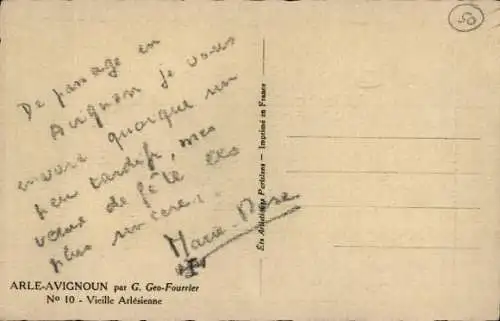 50
De passage en
Avignon je vous
envoie quoique un
peu tardifs, mes
vœux de fête les
plus sincères.
Marie-Rose
Ets Artistiques Parisiens — Imprimé en France
ARLE-AVIGNOUN par G. Geo-Fourrier
No 10 - Vieille Arlésienne